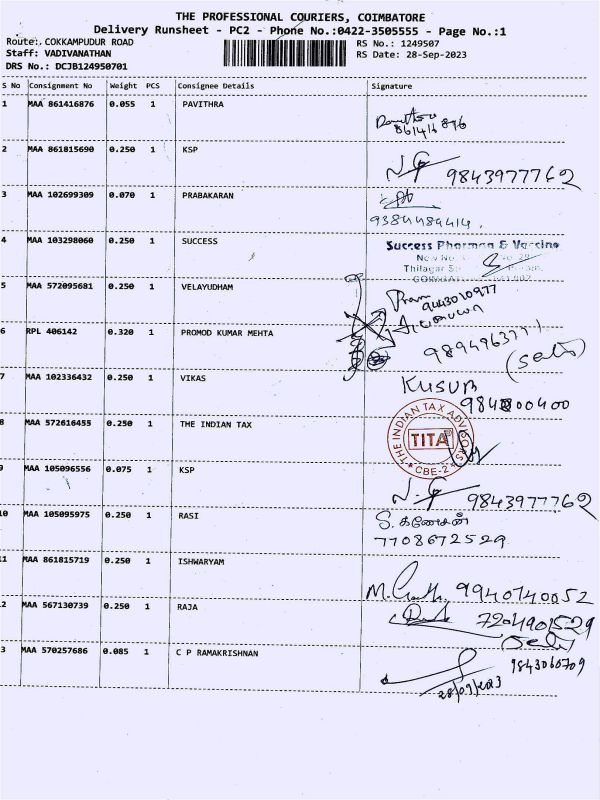 THE PROFESSIONAL COURIERS, COIMBATORE
Delivery Runsheet - PC2 - Phone No.:0422-3505555 - Page No.:1
Route:. COKKAMPUDUR ROAD
RS No.: 1249507
Staff: VADIVANATHAN
RS Date: 28-Sep-2023
DRS No.: DCJB124950701
S No Consignment No Weight PCS Consignee Details Signature
1 MAA 861416876 0.055 1 PAVITHRA
2 MAA 861815690 0.250 1 KSP
9843977762
3 MAA 102699309 0.070 1 PRABAKARAN
9384484414.
4 MAA 103298060 0.250 1 SUCCESS
Success Pharma & Vaccine
5 MAA 572095681 0.250 1 VELAYUDHAM
9443010977
6 RPL 406142 0.320 1 PROMOD KUMAR MEHTA
(Self)
7 MAA 102336432 0.250 1 VIKAS
KUSUM
8 MAA 572616455 0.250 1 THE INDIAN TAX
THE INDIAN TAX ADVISORS
TITA
CBE-2
9 MAA 105096556 0.075 1 KSP
9843977762
10 MAA 105095975 0.250 1 RASI
S. கணேசன்
7708672529
11 MAA 861815719 0.250 1 ISHWARYAM
9940740052
12 MAA 567130739 0.250 1 RAJA
7204901529
13 MAA 570257686 0.085 1 C P RAMAKRISHNAN
9843060709
28/09/2023